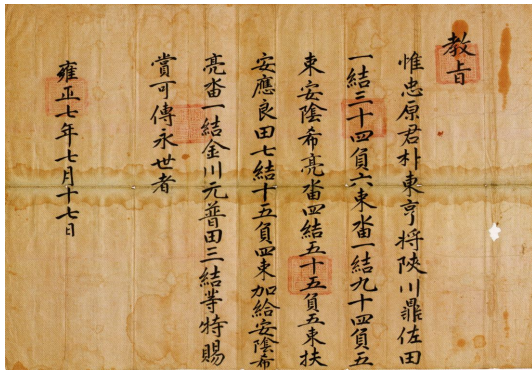 教旨
惟忠原君朴東亨将陜川鼎佐田
一結三十四負六束畓一結九十四負五
束安陰希亮畓四結五十五負五束扶
安應良田七結十五負四束加給安陰希
亮畓一結金川元普田三結等特賜
賞可傳永世者
雍正七年七月十七日